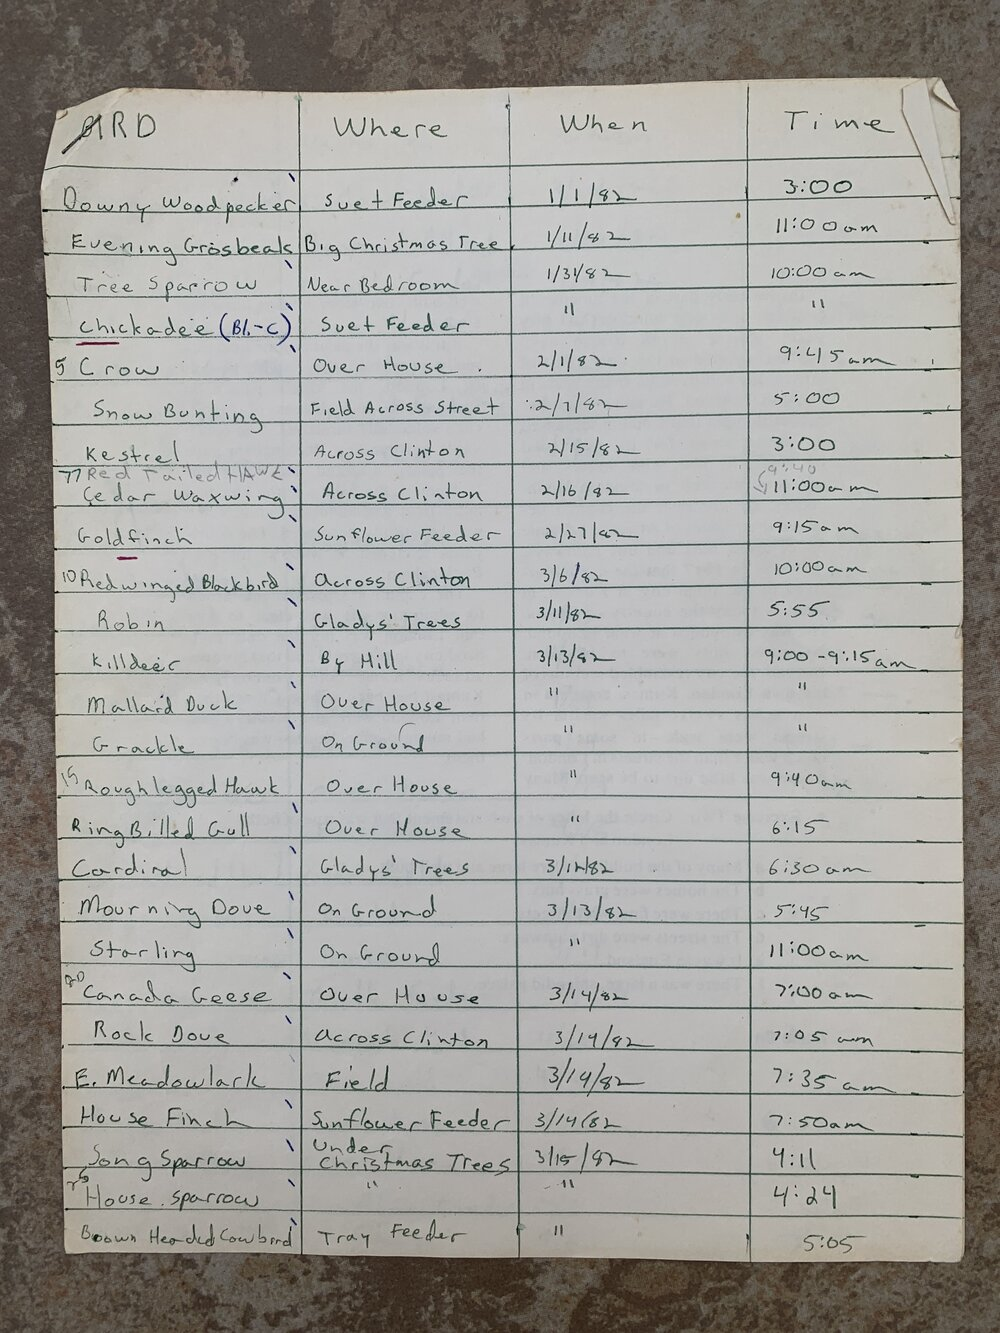 BIRD Where When Time
Downy Woodpecker Suet Feeder 1/1/82 3:00
Evening Grosbeak Big Christmas Tree 1/11/82 11:00am
Tree Sparrow Near Bedroom 1/31/82 10:00am
Chickadee (Bl.-C) Suet Feeder " "
5 Crow Over House 2/1/82 9:45am
Snow Bunting Field Across Street 2/7/82 5:00
Kestrel Across Clinton 2/15/82 3:00
77 Red Tailed HAWK 9:40
Cedar Waxwing Across Clinton 2/16/82 11:00am
Goldfinch Sunflower Feeder 2/27/82 9:15am
10 Redwinged Blackbird Across Clinton 3/6/82 10:00am
Robin Gladys' Trees 3/11/82 5:55
Killdeer By Hill 3/13/82 9:00-9:15am
Mallard Duck Over House " "
Grackle On Ground " "
15 Roughlegged Hawk Over House " 9:40am
Ring Billed Gull Over House " 6:15
Cardinal Gladys' Trees 3/12/82 6:30am
Mourning Dove On Ground 3/13/82 5:45
Starling On Ground " 11:00am
20 Canada Geese Over House 3/14/82 7:00am
Rock Dove Across Clinton 3/14/82 7:05 am
E. Meadowlark Field 3/14/82 7:35 am
House Finch Sunflower Feeder 3/14/82 7:50am
Song Sparrow Under Christmas Trees 3/15/82 4:11
25 House Sparrow " " 4:24
Brown Headed Cowbird Tray Feeder " 5:05